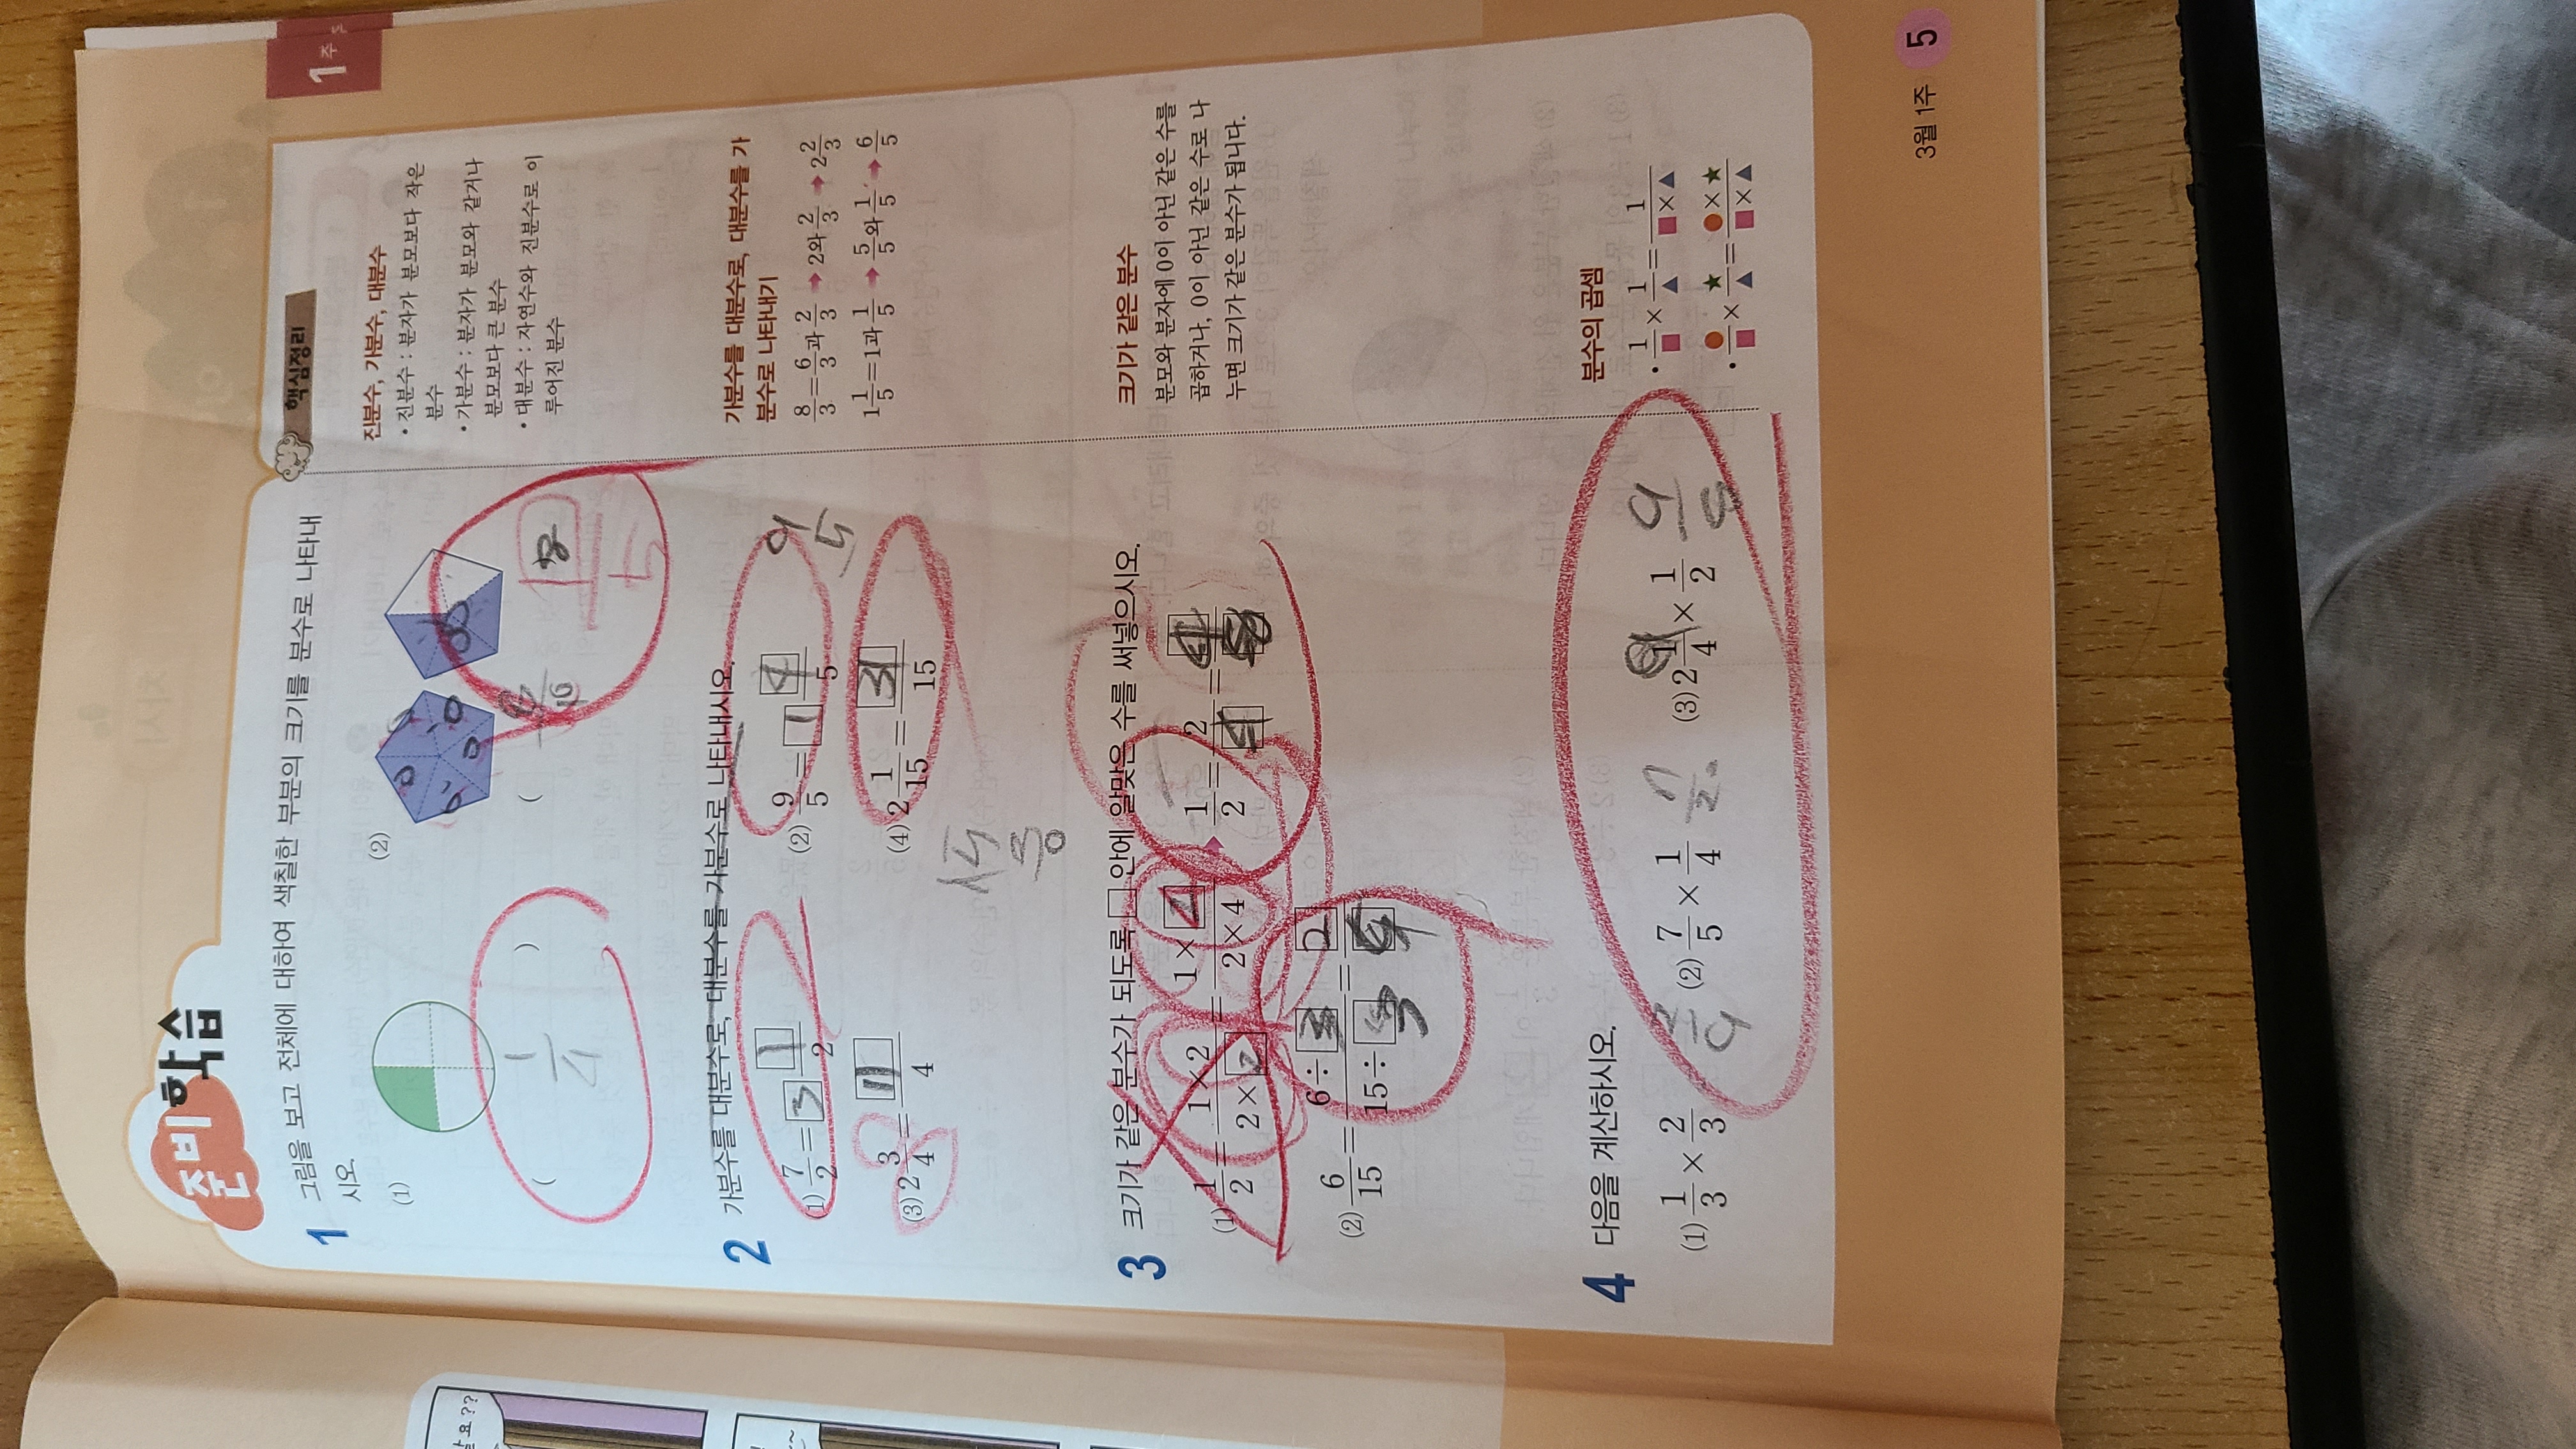 준비 학습
1주
1 그림을 보고 전체에 대하여 색칠한 부분의 크기를 분수로 나타내
시오.
(1) (2)
( 1/4 ) (
8/5
2 가분수를 대분수로, 대분수를 가분수로 나타내시오.
(1) 7/2 = 3 1/2 (2) 9/5 = 1 4/5
(3) 2 3/4 = 11/4 (4) 2 1/15 = 31/15
3 크기가 같은 분수가 되도록 □ 안에 알맞은 수를 써넣으시오.
(1) 1/2 = 1×2/2×2 = 1×4/2×4 → 1/2 = 2/4 = 4/8
(2) 6/15 = 6÷3/15÷3 = 2/5
4 다음을 계산하시오.
(1) 1/3 × 2/3 2/9 (2) 7/5 × 1/4 7/20 (3) 2 1/4 × 1/2 9/8
핵심정리
진분수, 가분수, 대분수
• 진분수 : 분자가 분모보다 작은
분수
• 가분수 : 분자가 분모와 같거나
분모보다 큰 분수
• 대분수 : 자연수와 진분수로 이
루어진 분수
가분수를 대분수로, 대분수를 가
분수로 나타내기
8/3 = 6/3과 2/3 → 2와 2/3 → 2 2/3
1 1/5 = 1과 1/5 → 5/5와 1/5 → 6/5
크기가 같은 분수
분모와 분자에 0이 아닌 같은 수를
곱하거나, 0이 아닌 같은 수로 나
누면 크기가 같은 분수가 됩니다.
분수의 곱셈
• 1/■ × 1/▲ = 1/■×▲
• ●/■ × ★/▲ = ●×★/■×▲
3월 1주 5